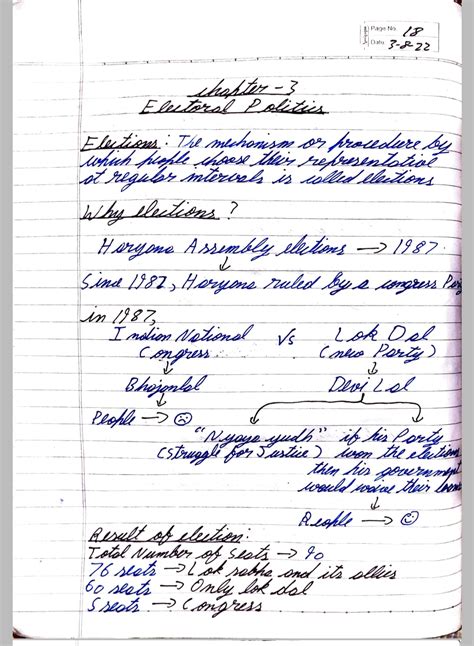 Page No. 18
Date 3-8-22
Chapter-3
Electoral Politics
Elections: The mechanism or procedure by
which people choose their representative
at regular intervals is called elections
Why elections?
Haryana Assembly elections → 1987.
↓
Since 1982, Haryana ruled by a congress Par
in 1987,
Indian National Vs Lok Dal
Congress (new Party)
↓ ↓
Bhajanlal Devi Lal
People → ☹
"Nyaya yudh" if his Party
(struggle for Justice) won the elections
then his government
would waive their loans
↓
People → ☺
Result of election:
Total Number of Seats → 90
76 seats → Lok sabha and its allies
60 seats → Only lok dal
5 seats → Congress